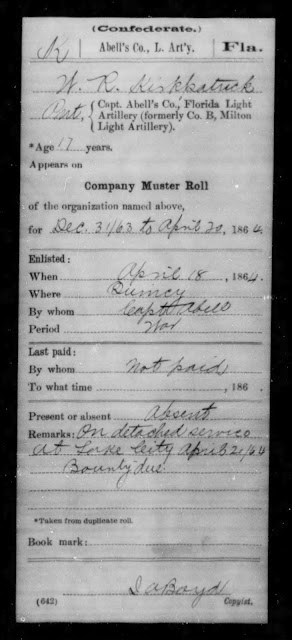 (Confederate.)
K Abell's Co., L. Art'y. Fla.
W. R. Kirkpatrick
Pvt, { Capt. Abell's Co., Florida Light Artillery (formerly Co. B, Milton Light Artillery).
*Age 17 years.
Appears on
Company Muster Roll
of the organization named above,
for Dec. 31/63 to April 30, 1864.
Enlisted:
When April 18, 1864.
Where
By whom Capt. Abell
Period War
Last paid:
By whom Not paid
To what time , 186 .
Present or absent Absent
Remarks: On detached service
at Lake City April 21/64
Bounty due
*Taken from duplicate roll.
Book mark:
J A Boyd
(642) Copyist.